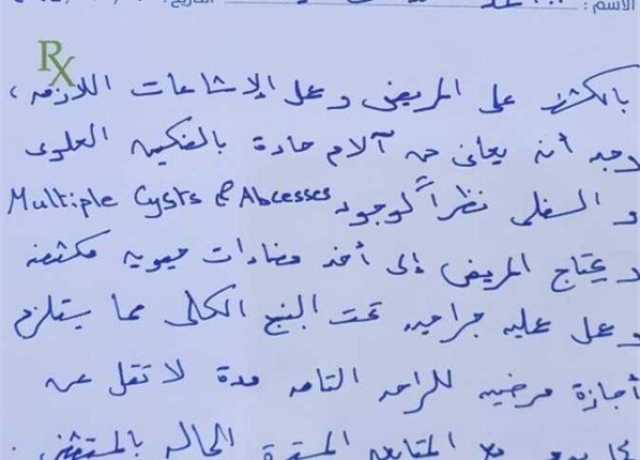 الاسم :
Rx
بالكشف على المريض وعمل الإشاعات اللازمه ،
وجد أنه يعانى من آلام حادة بالفكين العلوى
و السفلى نظراً لوجود Multiple Cysts & Abcesses
و يحتاج المريض إلى أخذ مضادات حيويه مكثفه
وعمل عمليه جراحيه تحت البنج الكلى مما يستلزم
أجازة مرضيه للراحه التامه مدة لا تقل عن
المتابعه المستمرة الحاله بالمستشفى .